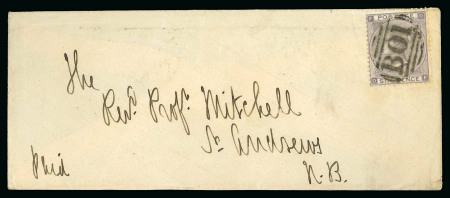 POSTAGE
B01
The
Revd. Profr. Mitchell
St. Andrews
N.B.
Paid